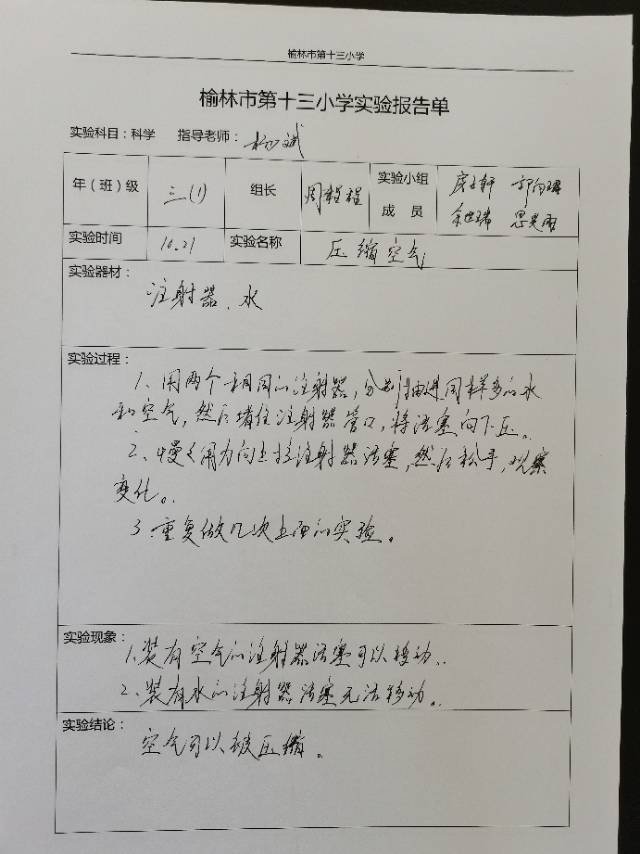 榆林市第十三小学
榆林市第十三小学实验报告单
实验科目：科学 指导老师：
年（班）级 三(1) 组长 周程程 实验小组
成 员
实验时间 10.21 实验名称 压缩空气
实验器材：
注射器、水
实验过程：
1、用两个相同的注射器，分别抽进同样多的水
和空气，然后堵住注射器管口，将活塞向下压。
2、慢慢用力向上拉注射器活塞，然后松手，观察
变化。
3、重复做几次上面的实验。
实验现象：
1、装有空气的注射器活塞可以移动。
2、装有水的注射器活塞无法移动。
实验结论：
空气可以被压缩。